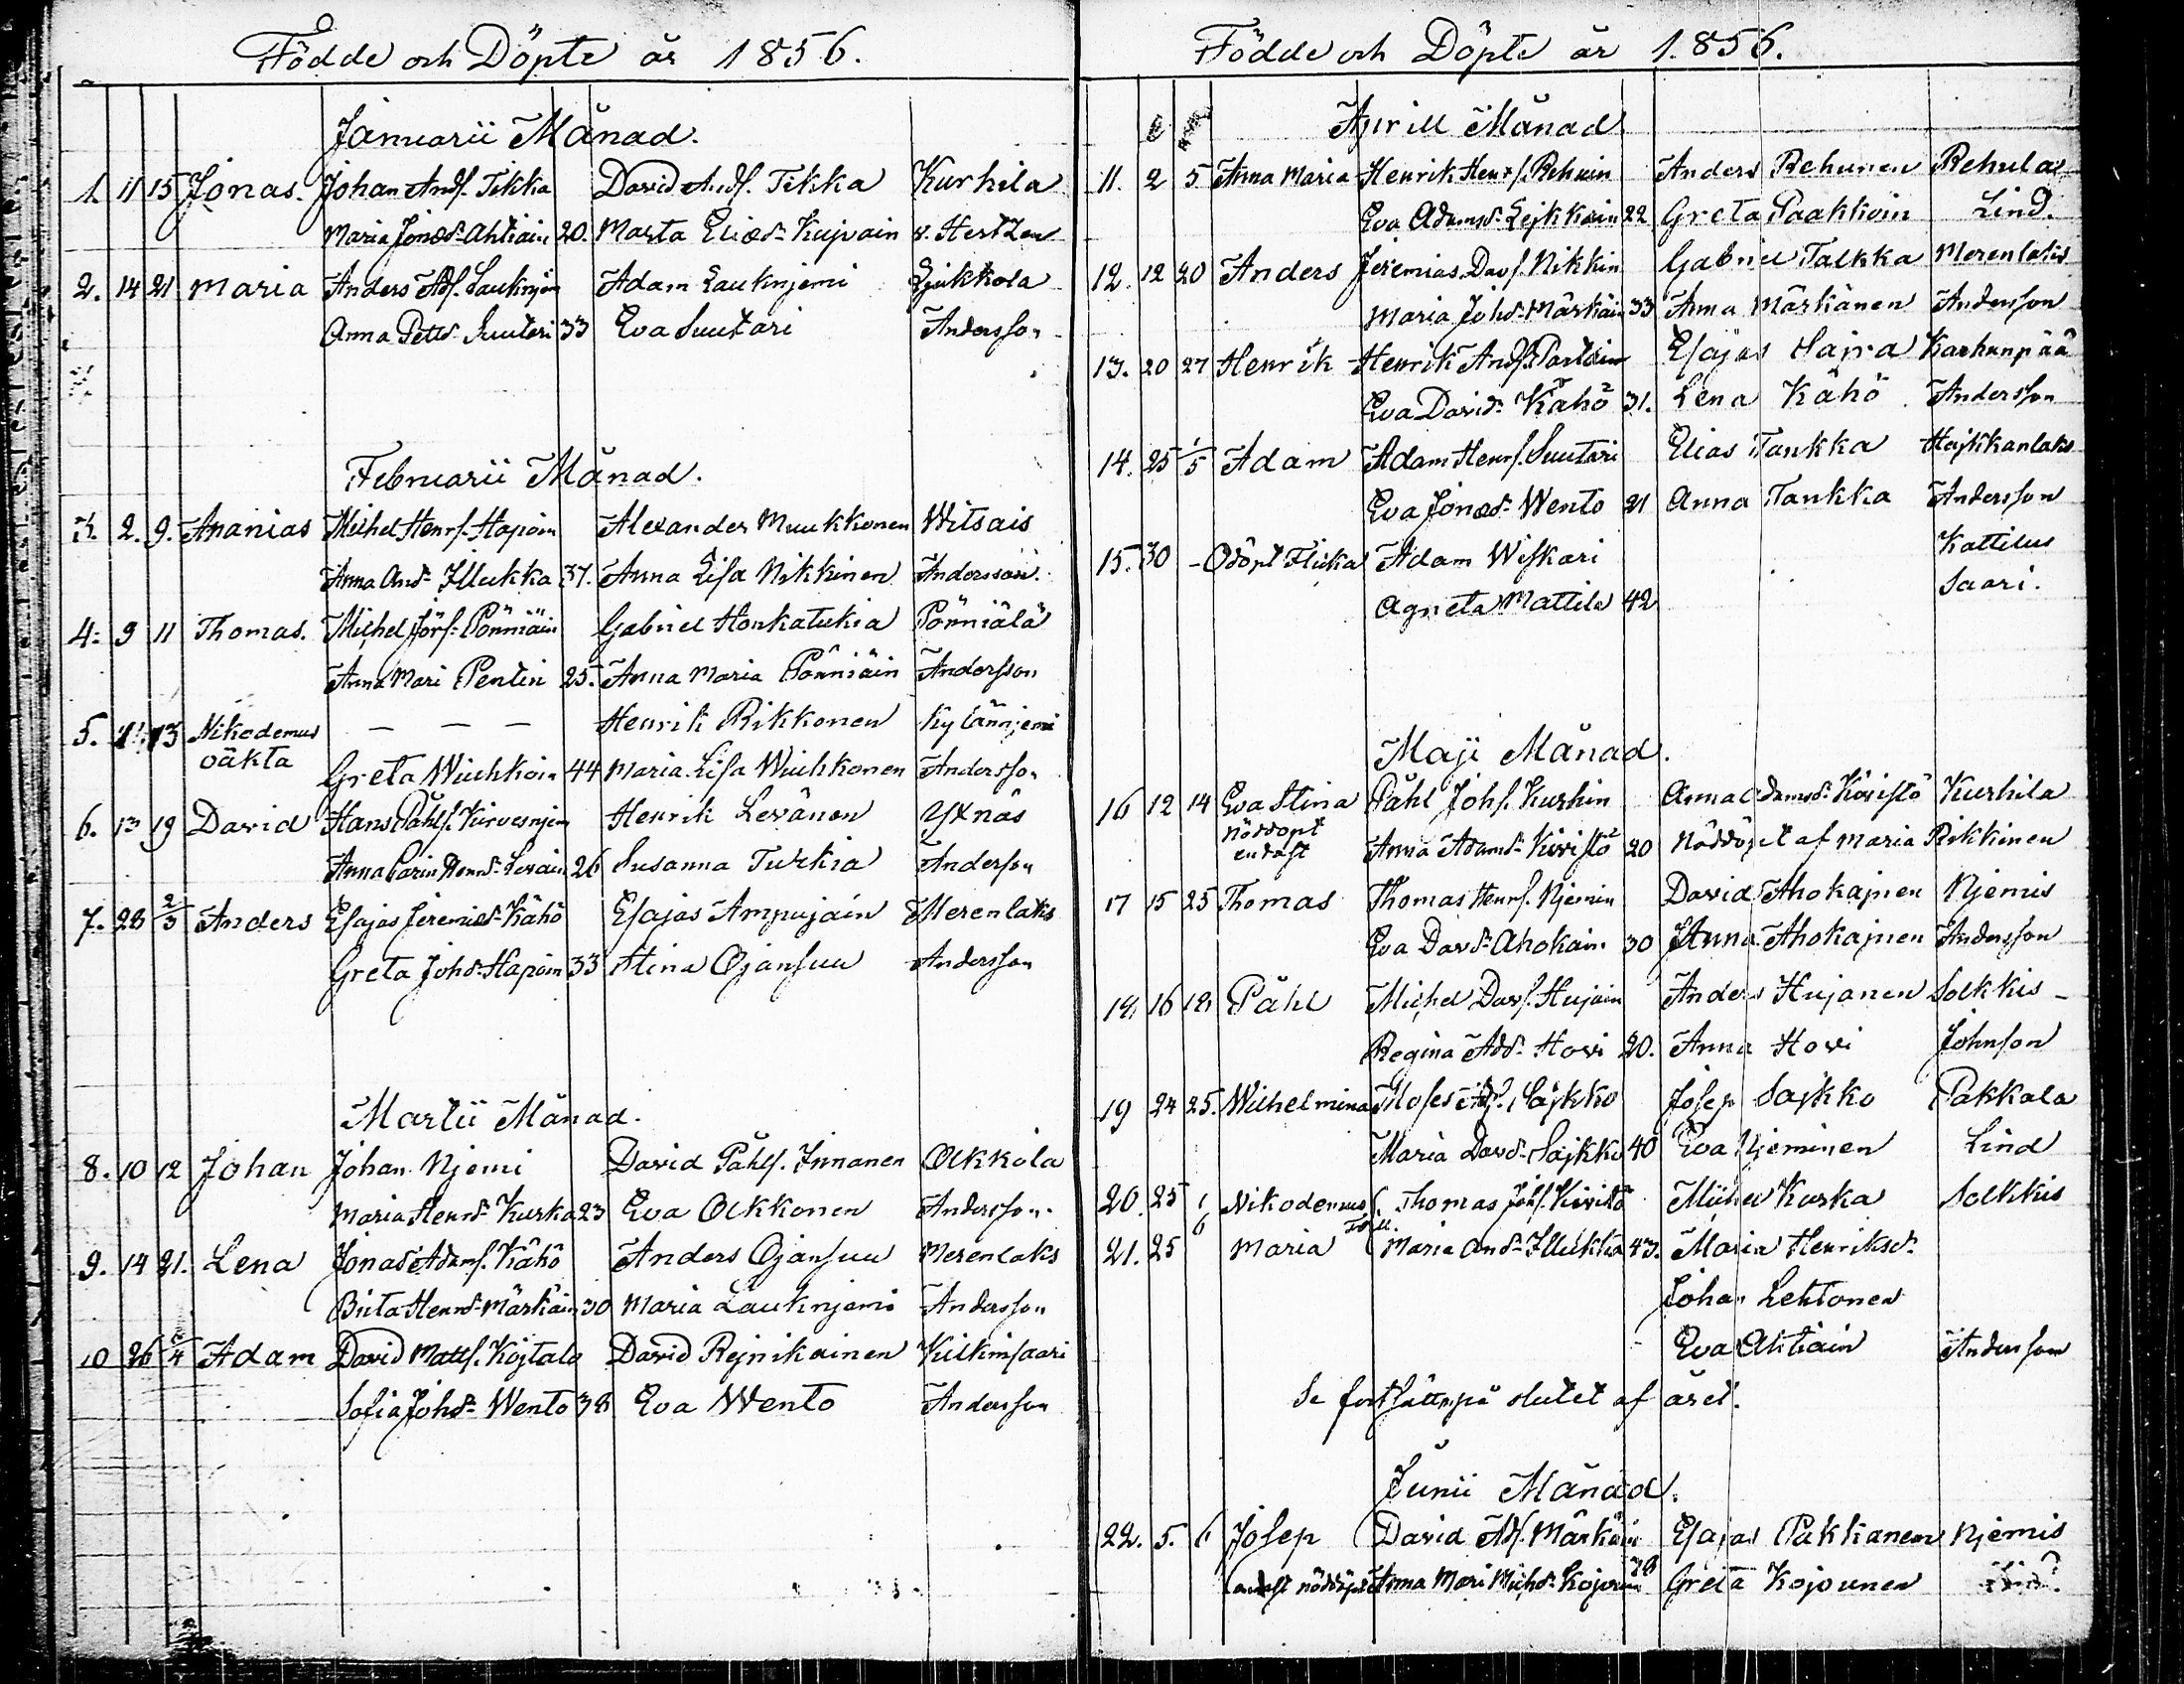 Födde och Döpte år 1856.
Januarii Månad.
1. 11 15 Jonas. Johan Andˢ. Tikka David Andˢ. Tikka Kurhila
Maria Jonæd. Ahtiain 20. Marta Eliæd. Kujvain v. Hertzen
2. 14 21 Maria Anders Adˢ. Lauknjem Adam Lauknjemi
Anna Petrd. Suutari 33 Eva Suutari Andersson
Februarii Månad.
3. 2. 9. Ananias Michel Henrs. Hapoin Alexander Muukkonen Witsais
Anna And. Illukka 37. Anna Lisa Nikkinen Andersson.
4. 9 11 Thomas. Michel Pönniäin Gabriel Honkatukia Pönniälä
Anna Mari Pentin 25. Anna Maria Pönniäin Andersson
5. 13 Nikodemus — — — Henrik Rikkonen Kylännjemi
oäkta Greta Wiuhkoin 44 Maria Lisa Wiuhkonen Andersson
6. 13 19 David Hans Påhls. Kirvesnjem Henrik Levänen Yxnäs
Anna Carin Henrd. Leväin 26 Susanna Turkia Andersson
7. 28 2/3 Anders Esajas Jeremiæs. Kähö Esajas Ampujain Merenlaks
Greta Johd. Hapoin 33 Stina Ojansuu Andersson
Martii Månad.
8. 10 12 Johan Johan Njemi David Påhls. Innanen Olkkola
Maria Henrd. Kurka 23 Eva Olkkonen Andersson.
9. 14 21. Lena Jonas Adams. Kähö Anders Ojansuu Merenlaks
Birta Henrd. Märkäin 30 Maria Lauknjemi Andersson
10 26 Adam David Matts. Kojtala David Rejnikainen Kilkinsaari
Sofia Johd. Wento 38 Eva Wento Andersson
Födde och Döpte år 1856.
Aprill Månad
11. 2 5 Anna Maria Henrik Henrs. Rehuin Anders Rehunen Rehula
Eva Adamsd. Lejkkain 22 Greta Paakkoin Lind.
12. 12 20 Anders Jeremias Davs. Nikkin Gabriel Talkka Merenlaks
Maria Johd. Märkäin 33 Anna Märkänen Andersson
13. 20 27 Henrik Henrik Ands. Partain Esajas Sajra Karhunpää
Eva Davidd. Kähö 31. Lena Kähö Andersson
14. 25 1/5 Adam Adam Henrs. Suutari Elias Tankka Hajkkanlaks
Eva Jonæd. Wento 21 Anna Tankka Andersson
15. 30 - Odöpt Flicka Adam Wiskari Kattilus
Agneta Mattila 42 saari.
Maji Månad.
16 12 14 Eva Stina Påhl Johs. Kurhin Anna Adamsd. Kiviſtö Kurhila
Nöddöpt endaſt Anna Adamsd. Kiviſtö 20 Nöddöpet af Maria Rikkinen
17 15 25 Thomas Thomas Henrs. Njemin David Ahokajnen Njemis
Eva Davd. Ahokain 30 Anna Ahokajnen Andersson
18 16 18 Påhl Michel Davs. Hujain Anders Hujanen Solkkis -
Regina Add. Hovi 20. Anna Hovi Johnson
19 24 25. Wilhelmina Moses Sajkko Josep Sajkko Pakkala
Maria Davd. Sajkko 40 Eva Njeminen Lind
20. 25 1/6 Nikodemus Thomas Johs. Kivistö Michel Kurka Solkkis
21. 25 Maria Maria And. Illukka 43. Maria Henriksd.
Johan Lehtonen
Eva Ahtiain Andersson
Se fortsättn på slutet af året.
Junii Månad.
22. 5. 6 Josep David Ads. Märkäin Esajas Pakkanen Njemis
endaſt nöddöpt Anna Mari Michd. Kojvuin 28 Greta Kojvunen